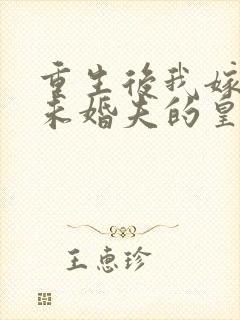 重生後我嫁
未婚夫的皇
王惠珍